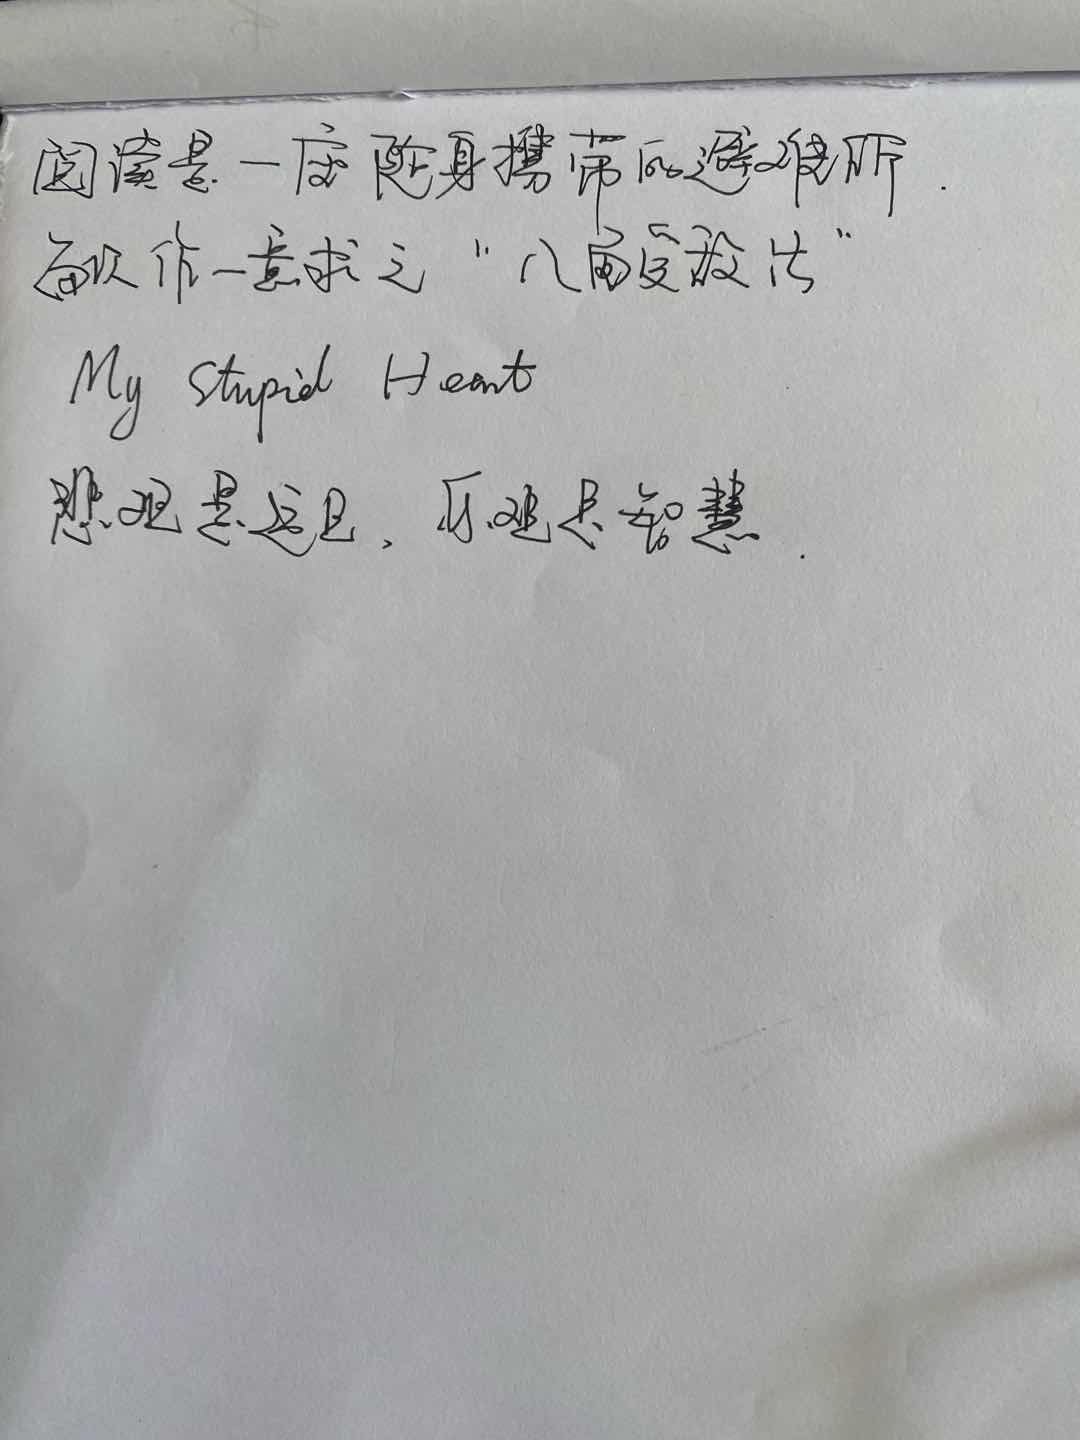 阅读是一座随身携带的避难所.
每次作一意求之 "八面受敌法"
My Stupid Heart
悲观是远见, 乐观是智慧.